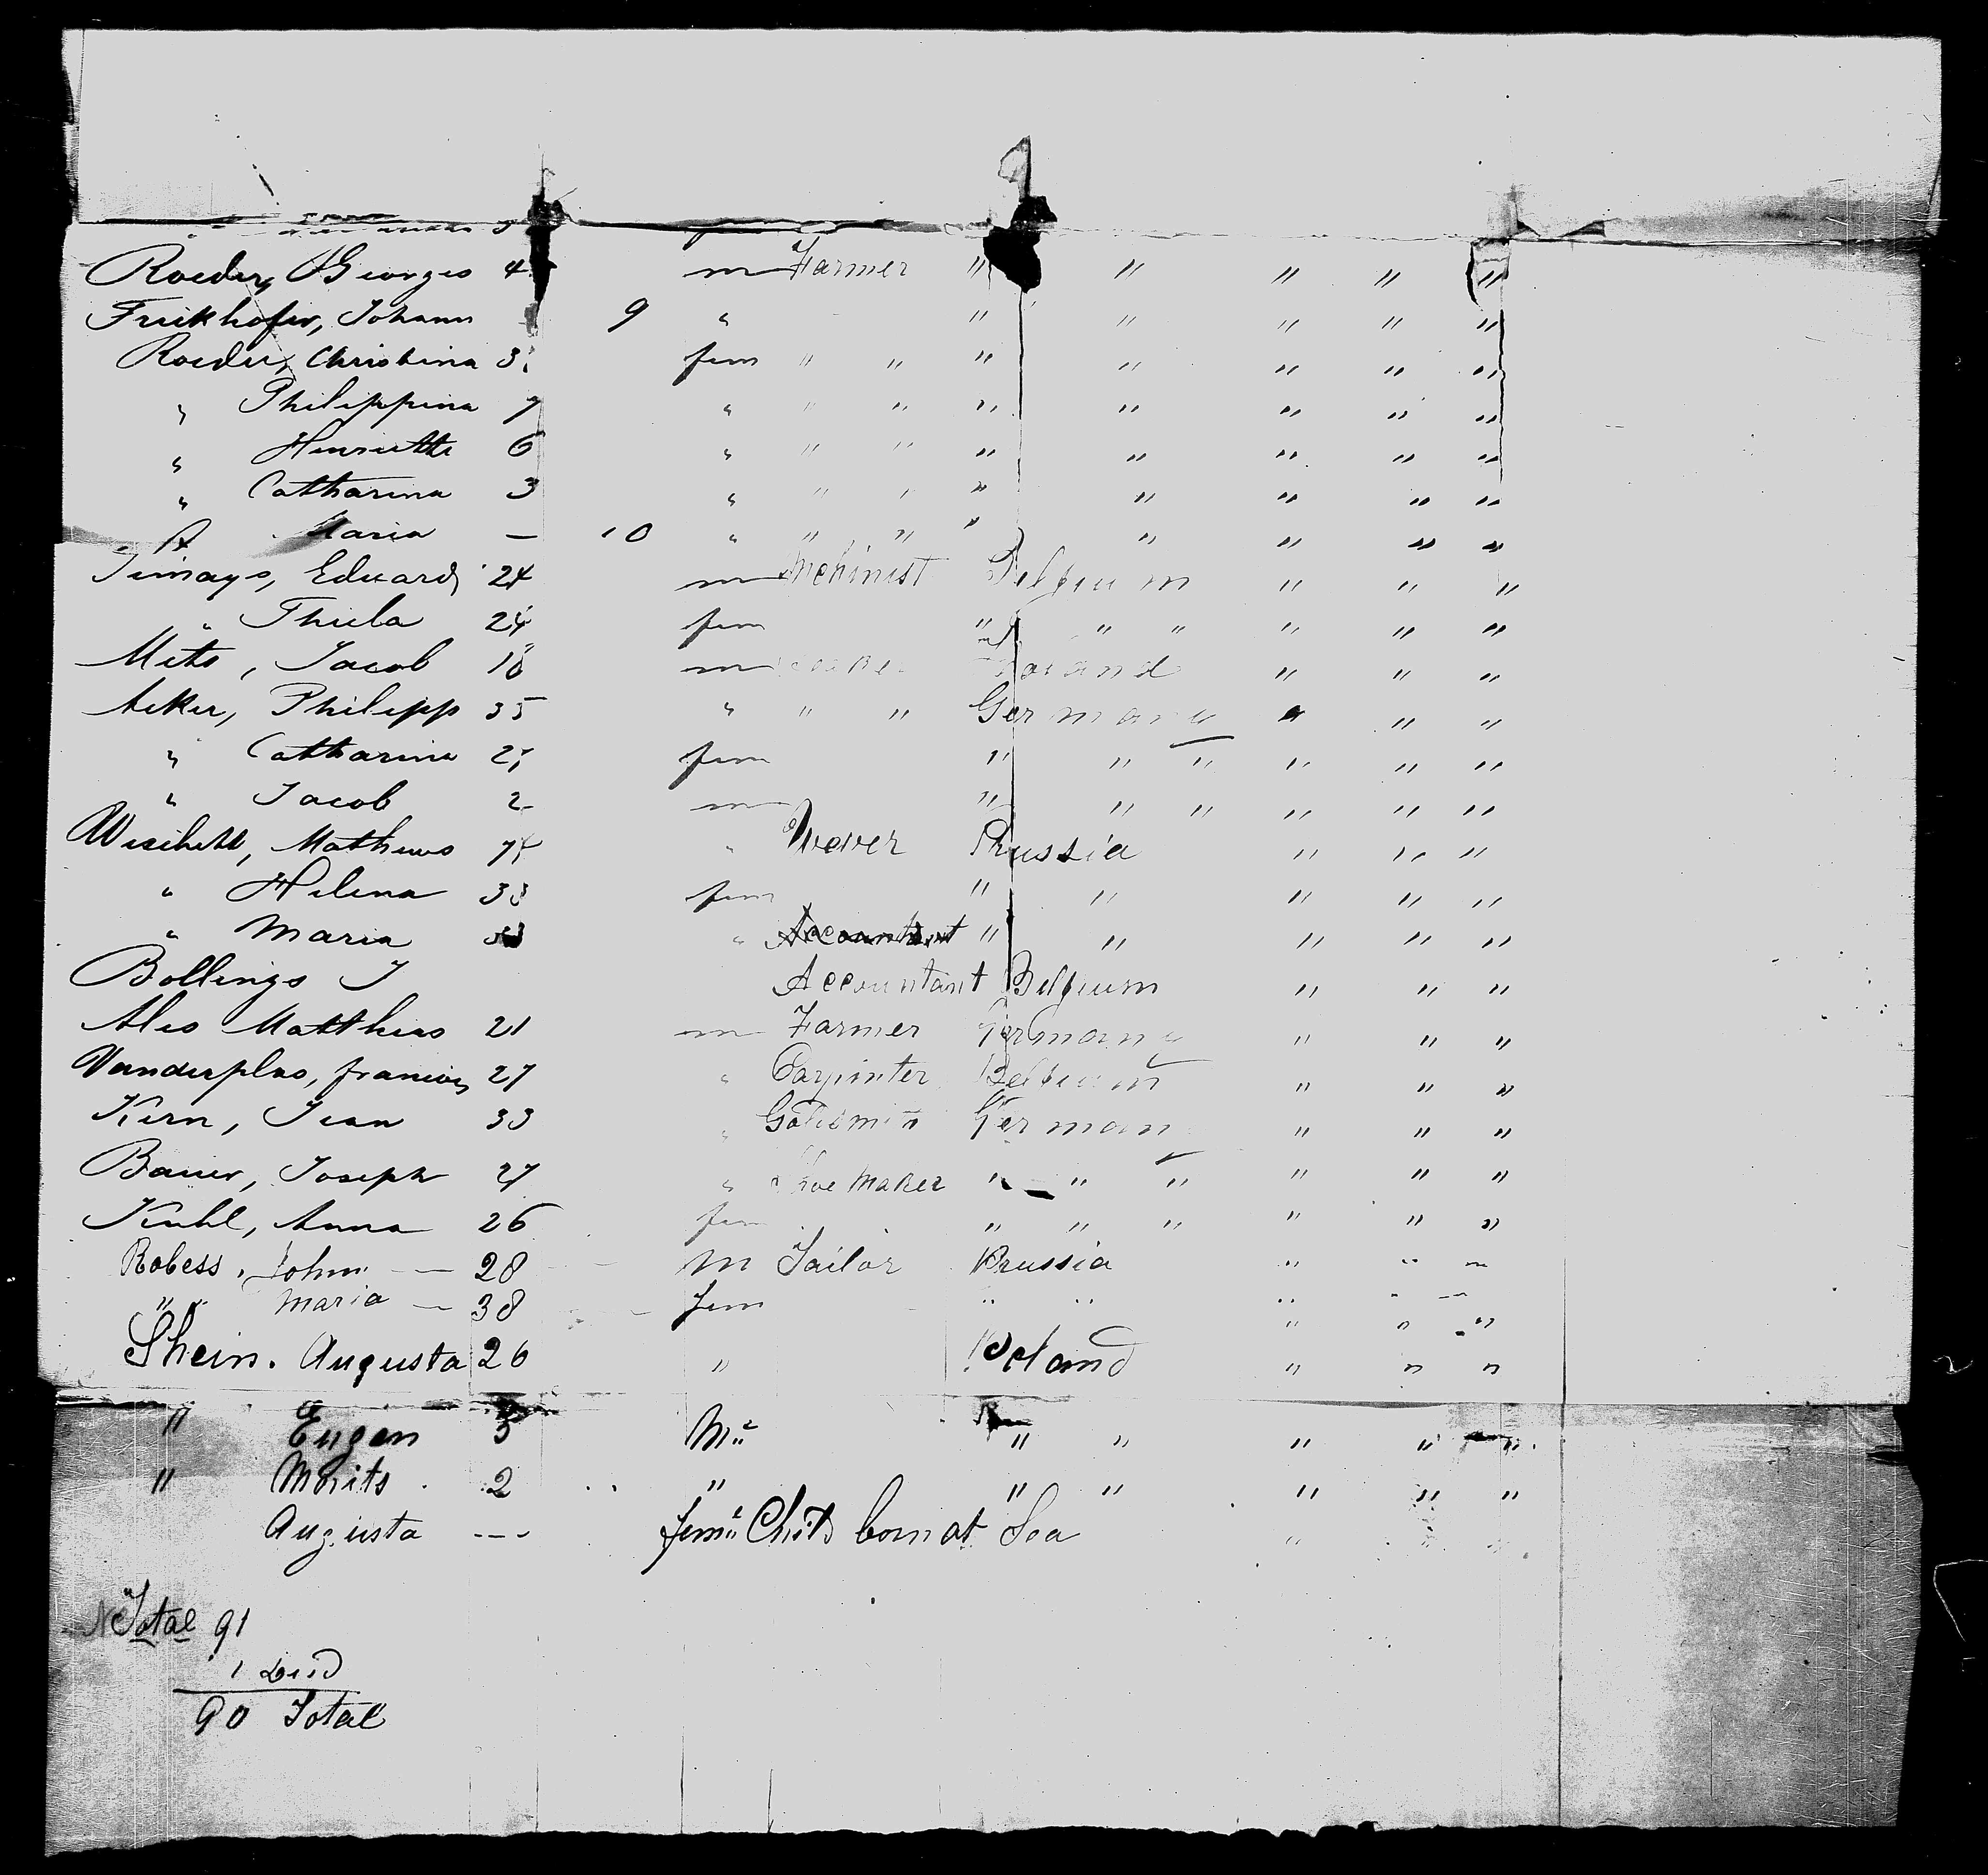 Roeder, Georges 4 m Farmer " " " " "
Frickhofer, Johann 9 " " " " " "
Roeder, Christina 3 fem " " " " " " "
" Philippina 7 " " " " " " " "
" Henriette 6 " " " " " " " "
" Catharina 3 " " " " " " " "
" Maria — 10 " " " " " " " "
Eduard 24 m Mchinist Belgium " " "
" Thiela 24 fem " " " " " "
Mets, Jacob 18 m " " "
Acker, Philipp 35 " " " Germany " " "
" Catharina 2 fem " " " " " "
" Jacob 2 m " " " " " "
Mathews " Wever Prussia " " "
" Helena 33 fem " " " " "
" Maria " Accountant " " " " "
Bollings J Accountant Belgium " " "
Ales Matthias 21 m Farmer Germany " " "
Vanderplas, francois 27 " Carpinter Belgium " " "
Kern, Jean 33 " Goldsmith German " " "
Bauer, Joseph 27 " Shoe maker " " " " " "
Kuhl, Anna 26 fem " " " " " "
Robess, John — 28 m Tailor Prussia " " "
" " Maria — 38 fem " " " " "
Shein. Augusta 26 " Poland " " "
" Eugen 3 M " " " " "
" Morits 2 " " " " " "
Augusta --- fem Child born at Sea " " "
Total 91
1 Died
90 Total